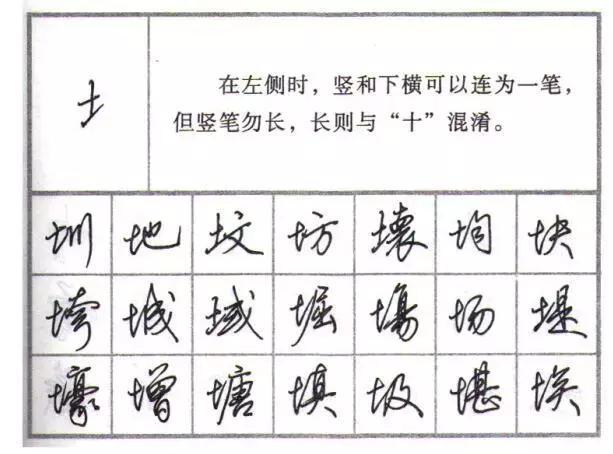 土
在左侧时，竖和下横可以连为一笔，
但竖笔勿长，长则与“十”混淆。
圳 地 坟 坊 壞 均 块
垮 城 域 堀 塲 场 堤
壕 增 塘 填 圾 堪 埃